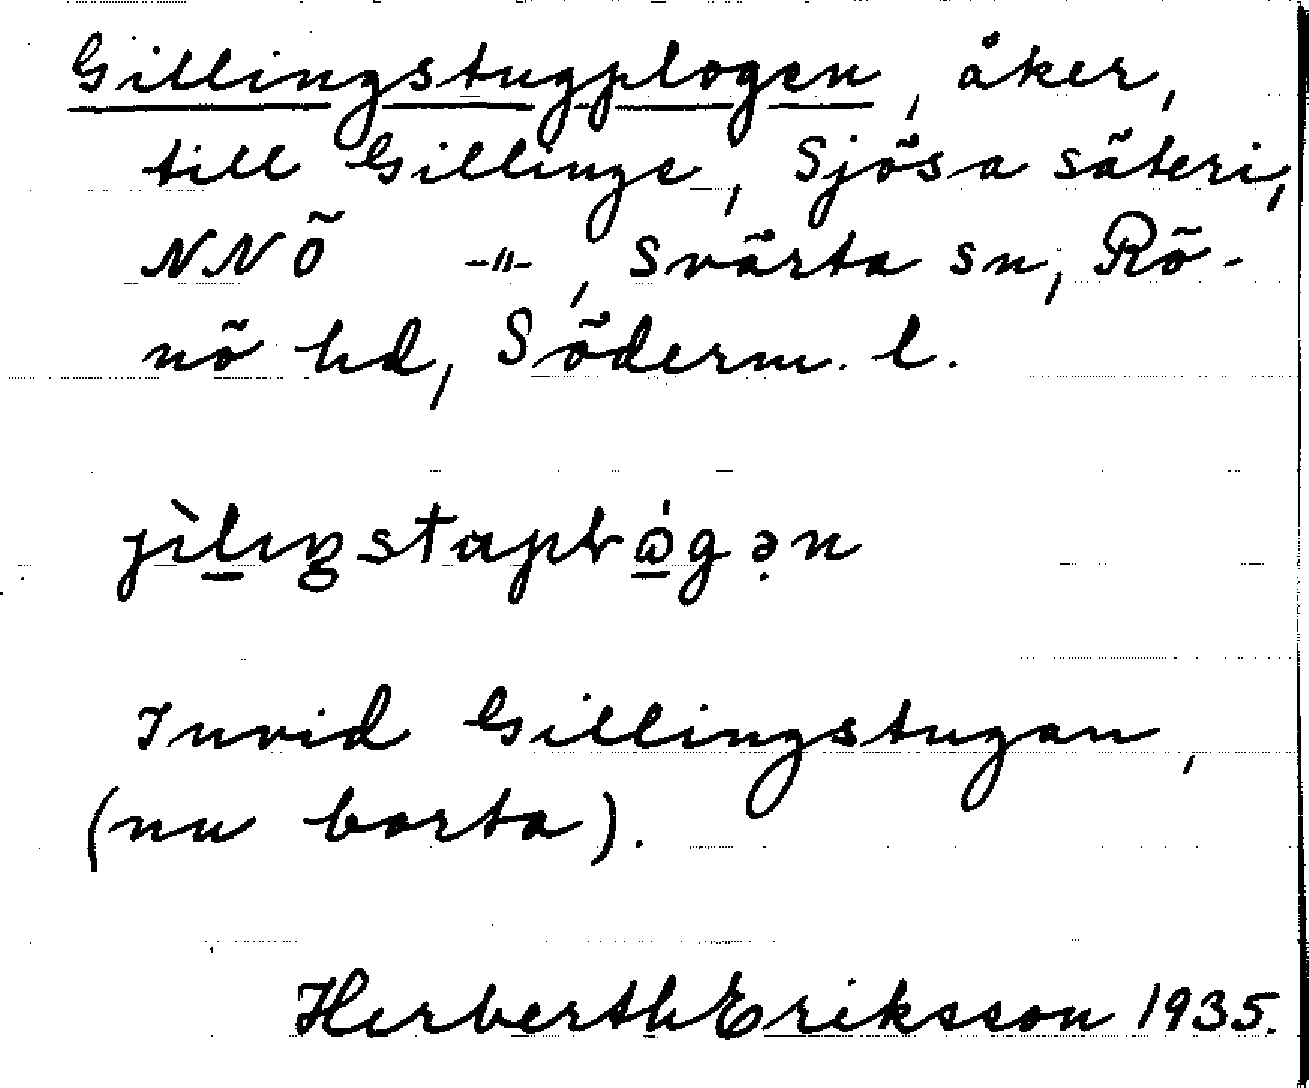 Gillingstugplogen, åker,
till Gillinge, Sjösa säteri,
NNÖ -"-, Svärta sn, Rö-
nö hd, Söderm. l.
jìlıŋstaplɷ́gən
Invid Gillingstugan,
(nu borta).
Herberth Eriksson 1935.